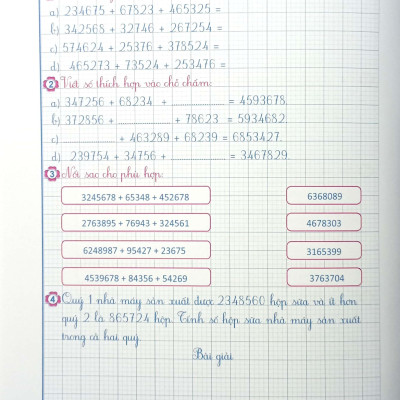 a) 234675 + 67823 + 465325 =
b) 342568 + 32746 + 267254 =
c) 574624 + 25376 + 378524 =
d) 465273 + 73524 + 253476 =
2 Viết số thích hợp vào chỗ chấm:
a) 347256 + 68234 + .................... = 4593678.
b) 372856 + .................... + 78623 = 5934682.
c) .................... + 463289 + 68239 = 6853427.
d) 239754 + 34756 + .................... = 3467829.
3 Nối sao cho phù hợp:
3245678 + 65348 + 452678 6368089
2763895 + 76943 + 324561 4678303
6248987 + 95427 + 23675 3165399
4539678 + 84356 + 54269 3763704
4 Quý 1 nhà máy sản xuất được 2348560 hộp sữa và ít hơn
quý 2 là 865724 hộp. Tính số hộp sữa nhà máy sản xuất
trong cả hai quý.
Bài giải